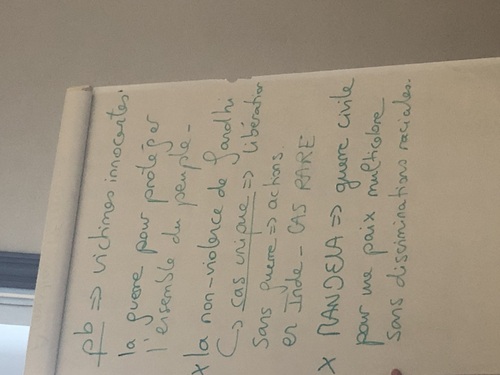 pb => victimes innocentes.
la guerre pour protéger
l'ensemble du peuple -
x la non-violence de Gandhi
↳ cas unique => libération
sans guerre => actions.
en Inde - CAS RARE
x MANDELA => guerre civile
pour une paix multicolore
sans discriminations raciales.